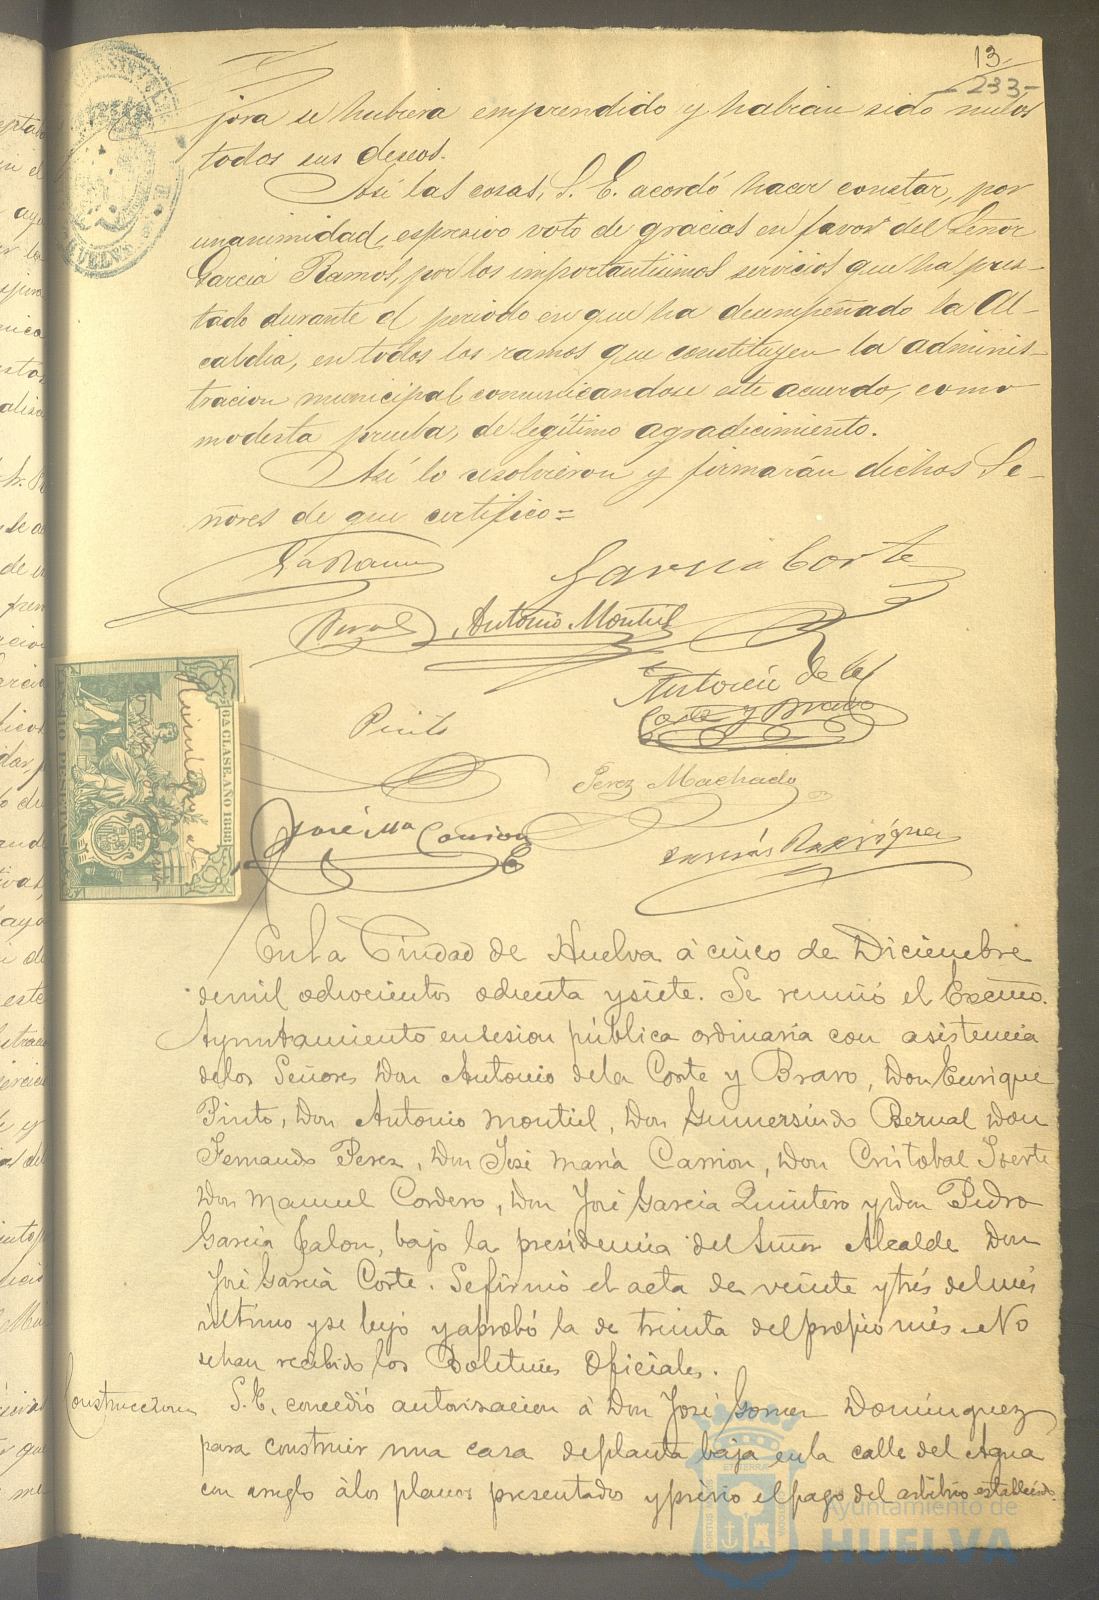 13
233-
jora se hubiera emprendido y habrian sido nulos
todos sus deseos.
Así las cosas, S. E. acordó hacer constar, por
unanimidad, espresivo voto de gracias en favor del Señor
Garcia Ramos, por los importantisimos servicios que ha pres-
tado durante el periodo en que ha desempeñado la Al-
caldia, en todos los ramos que constituyen la adminis-
tracion municipal comunicandose este acuerdo, como
modesta prueba, de legítimo agradecimiento.
Así lo resolvieron y firmarán dichos Se-
ñores de que certifico=
Ga Ramos
Garcia Corte
Bernal
Antonio Montiel
Antonio de la
Corte y Bravo
Pinto
Perez Machado
José Ma Carrion
Rodriguez
6A CLASE. AÑO 1888
HUELVA
En la Ciudad de Huelva á cinco de Diciembre
de mil ochocientos ochenta y siete. Se reunió el Excmo.
Ayuntamiento en sesion pública ordinaria con asistencia
de los Señores Don Antonio de la Corte y Bravo, Don Enrique
Pinto, Don Antonio Montiel, Don Gumersindo Bernal Don
Fernando Perez, Don José María Carrion, Don Cristobal
Don Manuel Cordero, Don José Garcia Quintero y Don Pedro
Garcia Jalon, bajo la presidencia del Señor Alcalde Don
José Garcia Corte. Se firmó el acta de veinte y tres del més
último y se leyó y aprobó la de treinta del propio més. No
se han recibido los Boletines Oficiales.
Construccion S. E. concedió autorizacion á Don José Gomez Domínguez
para construir una casa de planta baja en la calle del Agua
con arreglo á los planos presentados y prévio el pago del arbitrio establecido.
Ayuntamiento de
HUELVA